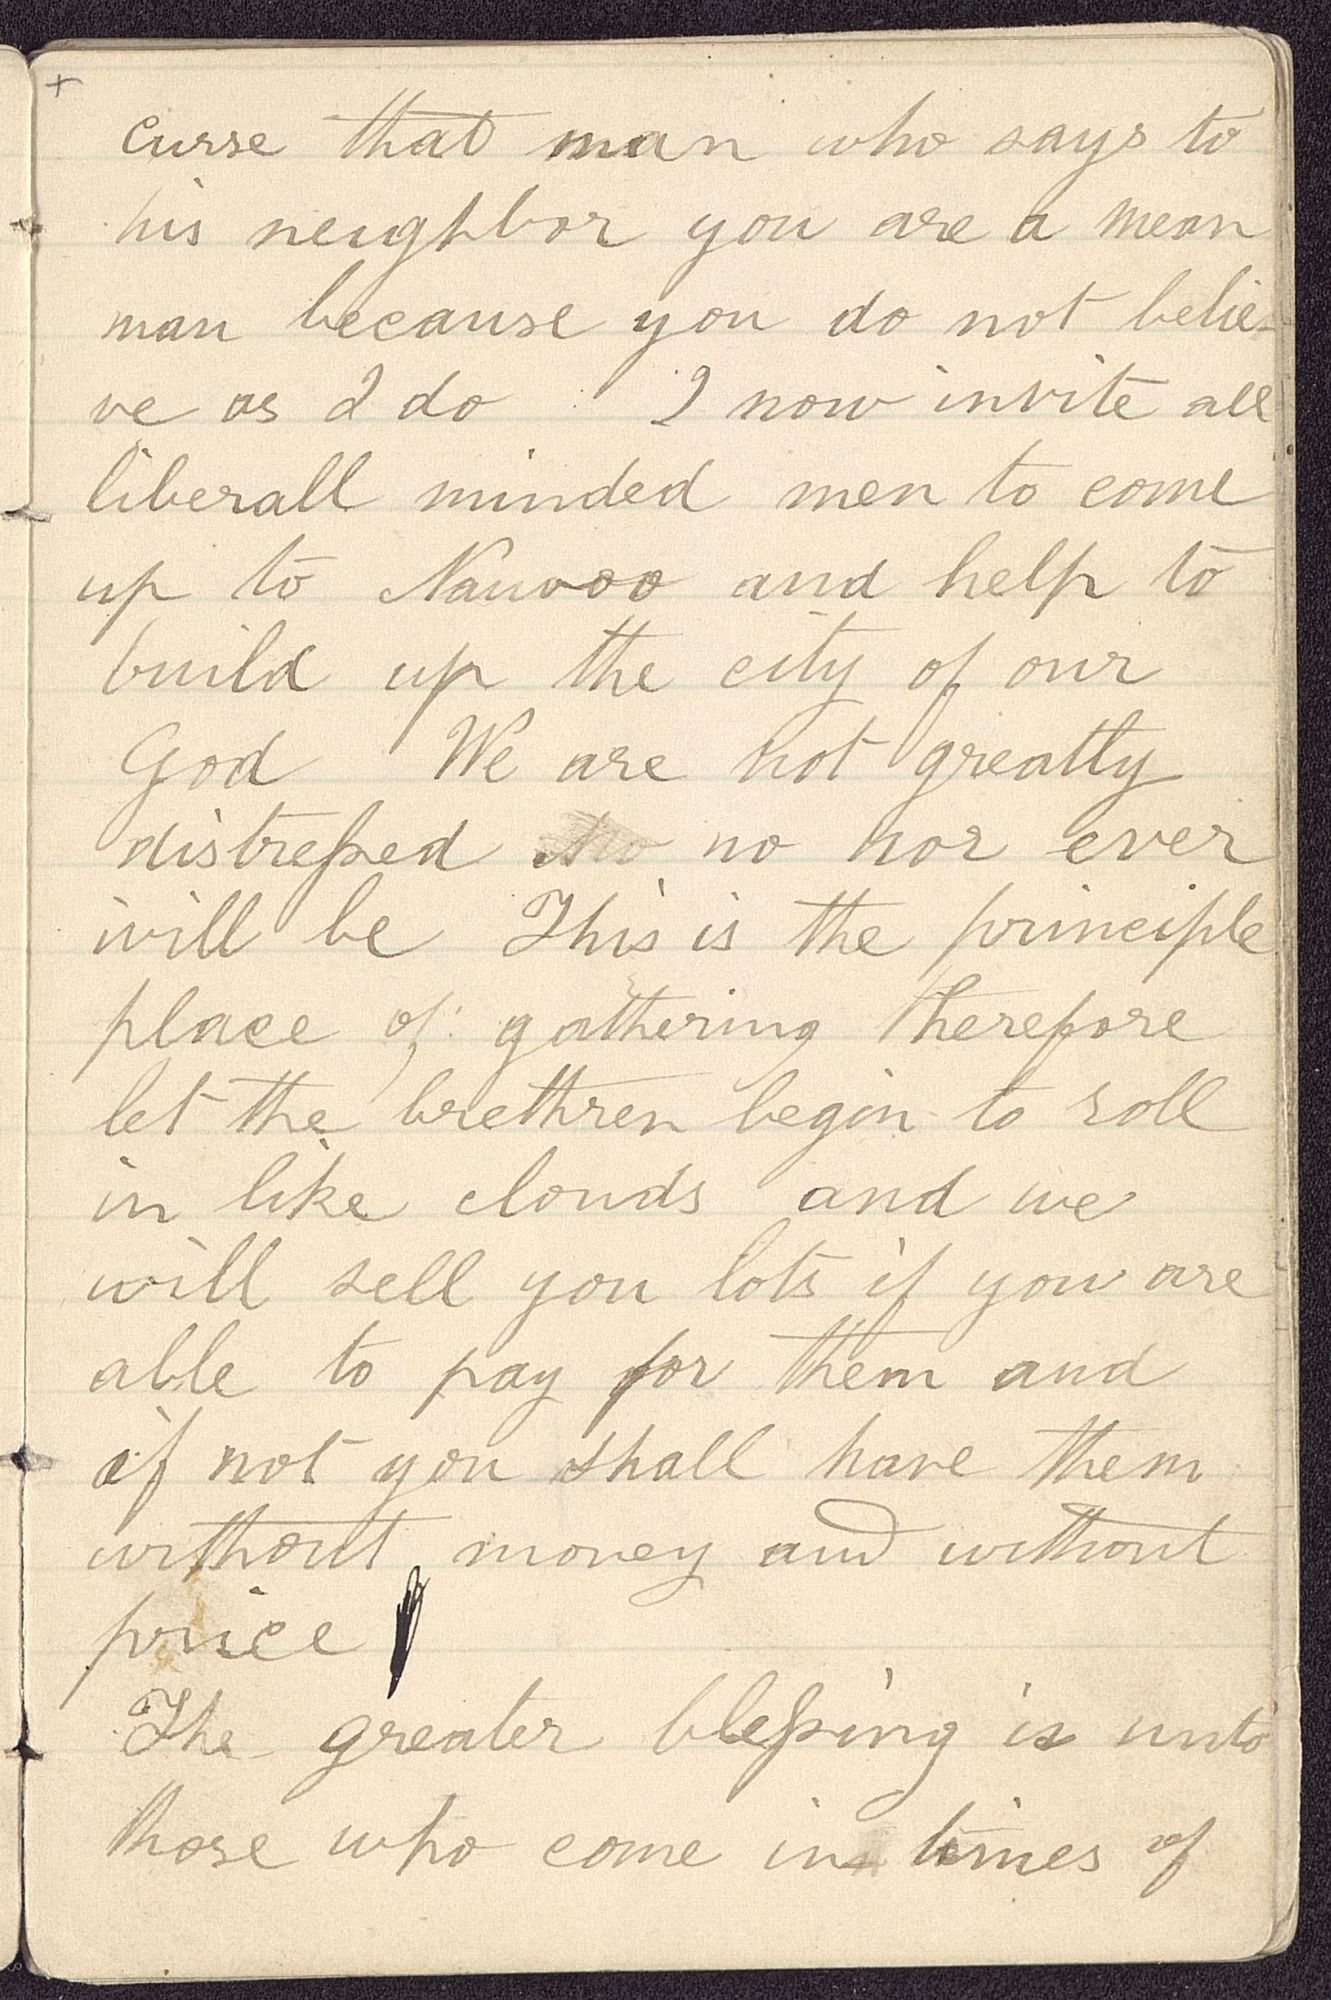 +
curse that man who says to
his neighbor you are a mean
man because you do not belie-
ve as I do I now invite all
liberall minded men to come
up to Nauvoo and help to
build up the city of our
God We are not greatly
distreſsed no nor ever
will be This is the principle
place of gathering therefore
let the brethren begin to roll
in like clouds and we
will sell you lots if you are
able to pay for them and
if not you shall have them
without money and without
price
The greater bleſsing is unto
those who come in times of